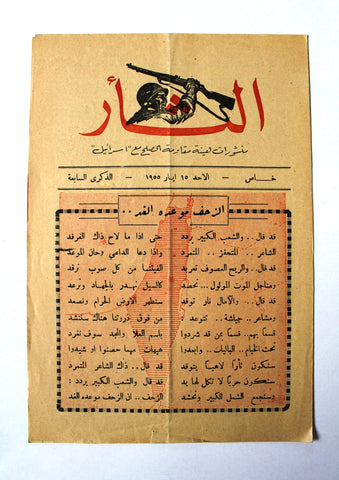 الثأر
منشورات لهيئة مقاومة الصلح مع "اسرائيل"
خاص - الاحد ١٥ ايار ١٩٥٥ - الذكرى السابعة
الزحف موعده الغد . .
قد قال .. والشعب الكبير يردد
حتى اذا ما لاح ذاك الفرقد
الشاعر .. المتحفز .. المتمرد
واذا دعا الداعي وحان الموعد
قد قال .. والريح العصوف تعربد
الفيتنا من كل صوب نرفد
ومناجل الموت المولول .. تحصد
كالسيل نهدر بالجهاد ونرعد
قد قال .. والآمال نار توقد
سنطهر الارض الحرام ونصعد
ومشاعر .. جياشة .. تتوعد
من فوق ذروتنا هناك سننشد
قسما بهم .. قسما بمن قد شردوا
باسم العلا والمجد سوف نغرد
تحت الخيام .. الباليات .. وابعدوا
هيهات مهما حصنوا او شيدوا
سنكون ثأرا لاهبا يتوقد
قد قال .. ذاك الشاعر المتمرد
سنكون حربا لا تكل لها يد
قد قال والشعب الكبير يردد :
وسنجمع الشمل الكبير ونحشد
الزحف .. ان الزحف موعده الغد